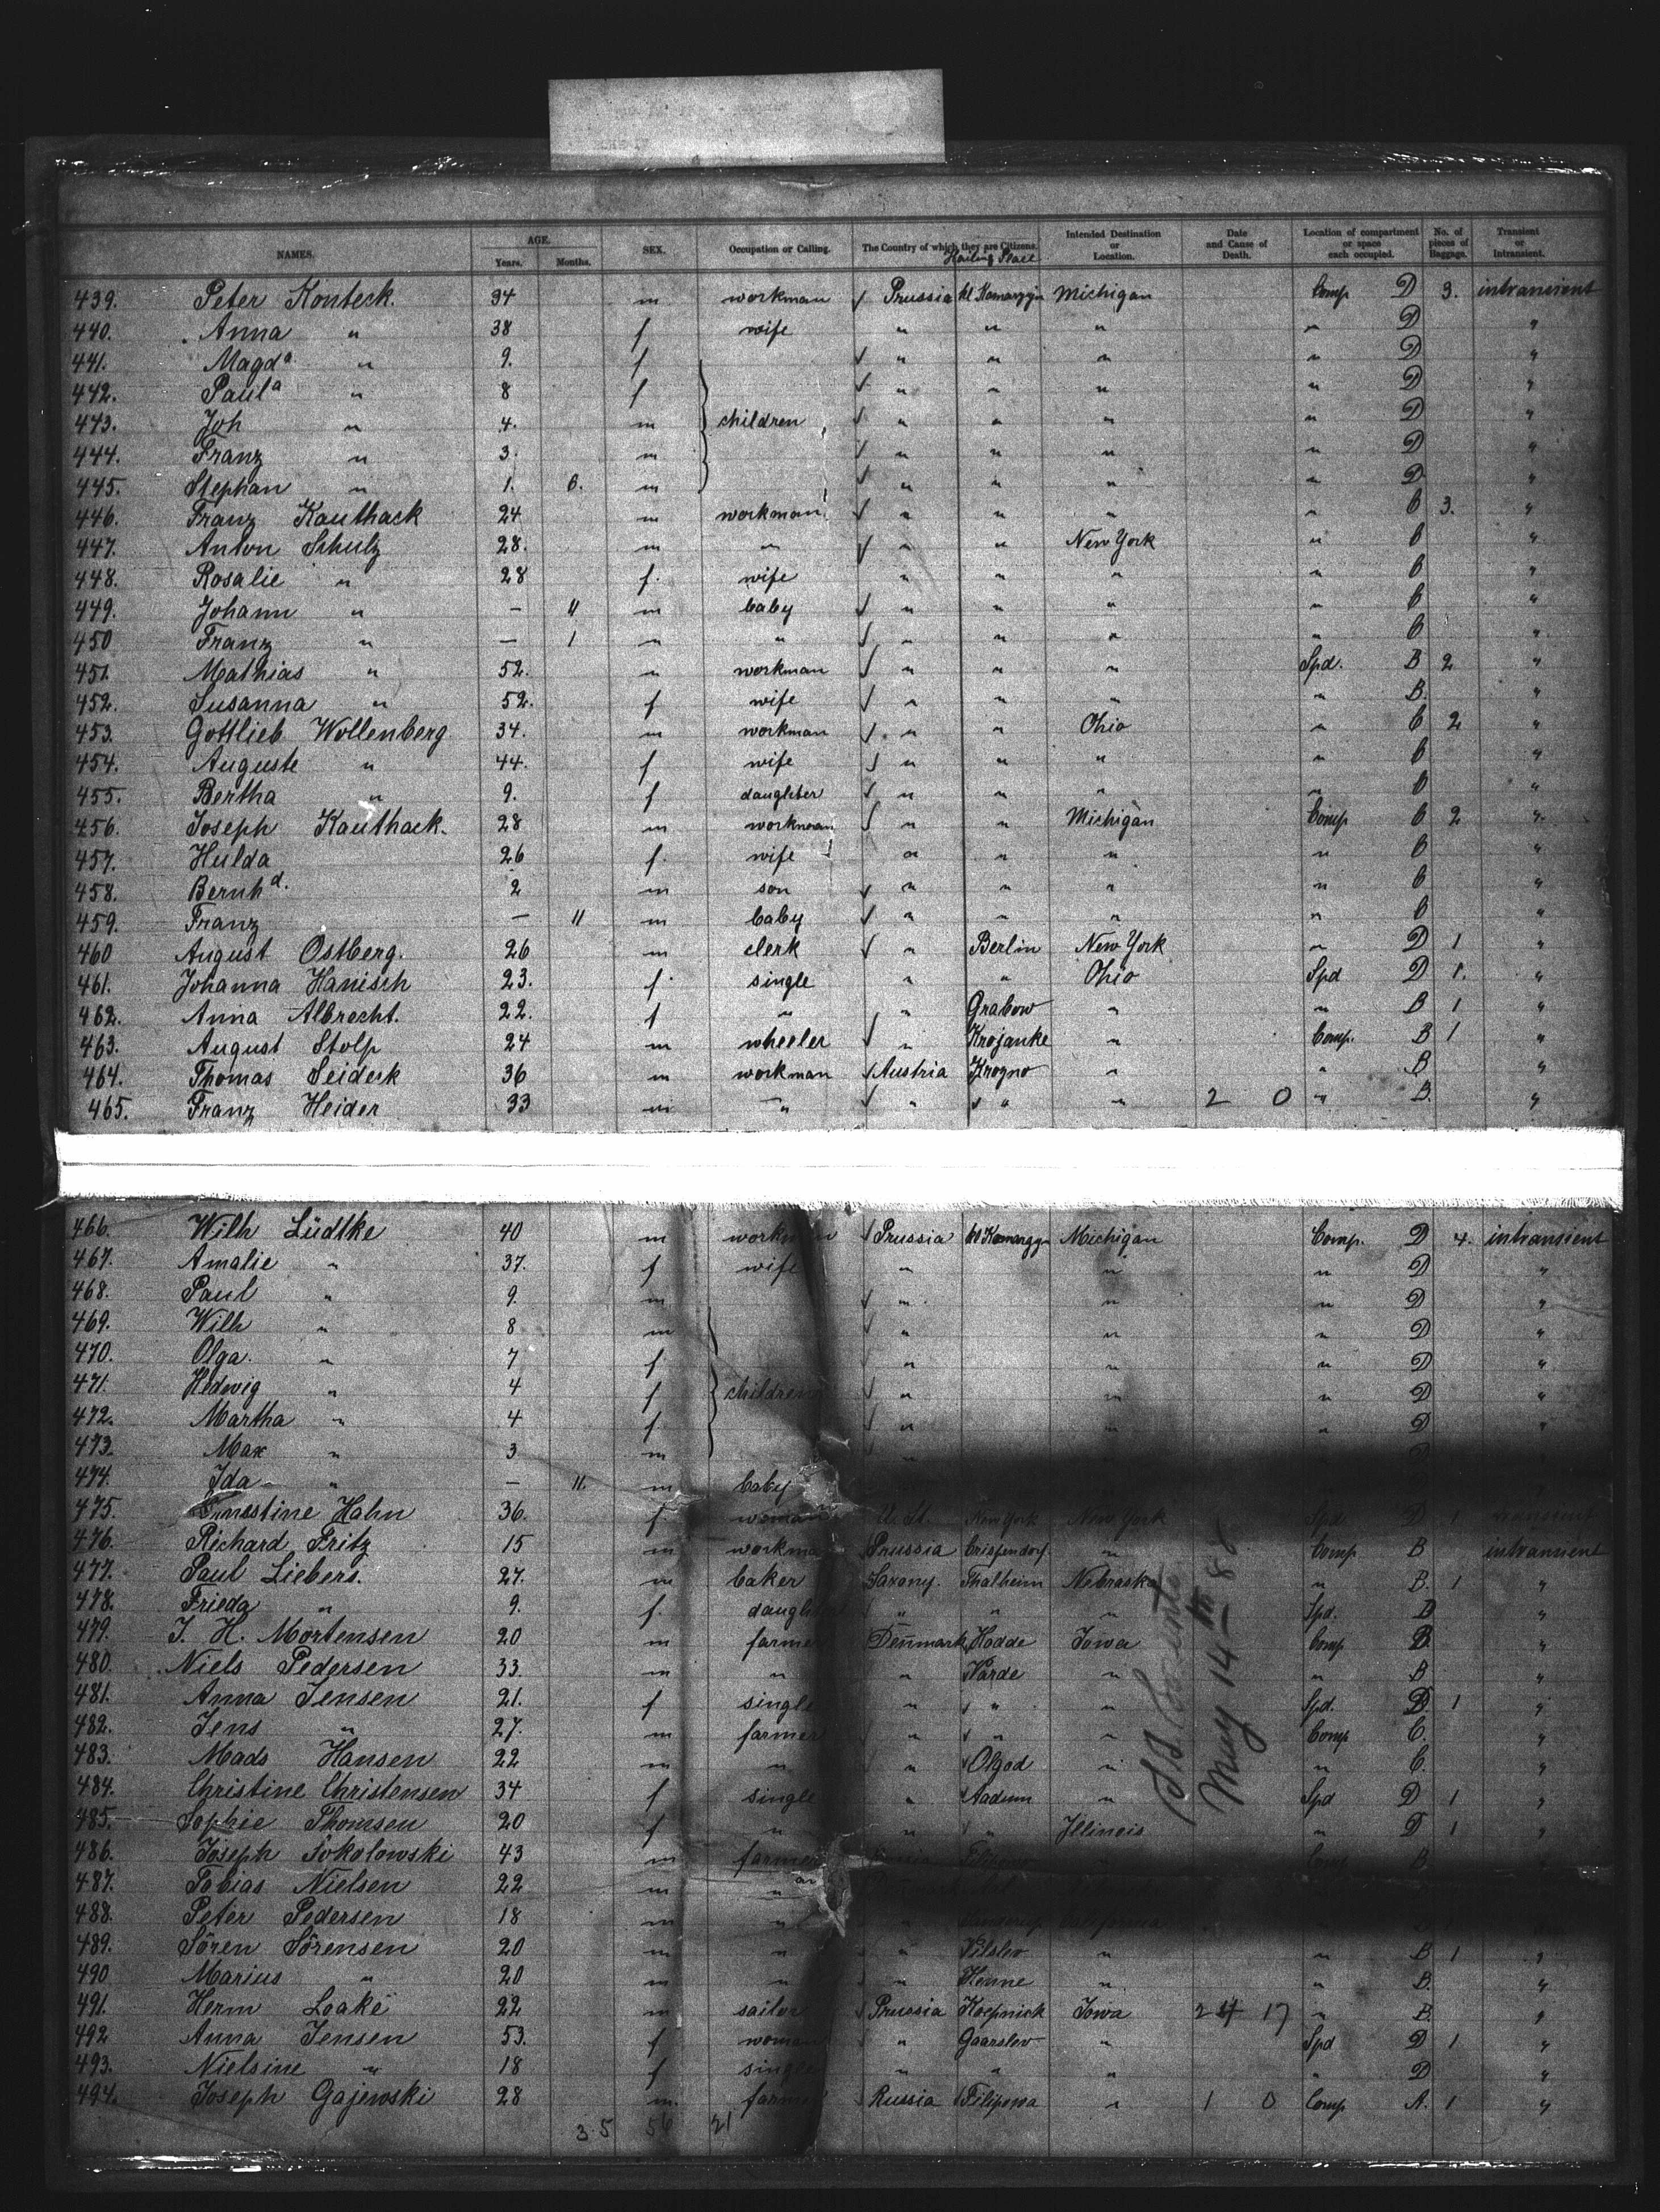 NAMES. AGE. Years. Months. SEX. Occupation or Calling. The Country of which they are Citizens. Hailing Place Intended Destination or Location. Date and Cause of Death. Location of compartment or space each occupied. No. of pieces of Baggage. Transient or Intransient.
439. Peter Konteck. 34 m workman Prussia Michigan Comp D 3. intransient
440. Anna " 38 f wife " " " " D "
441. Magda " 9. f " " " " D "
442. Paula " 8 f " " " " D "
443. Joh " 4. m children " " " " D "
444. Franz " 3. m " " " " D "
445. Stephan " 1. 6. m " " " " D "
446. Franz Kauthack 24 m workman " " " " C 3. "
447. Anton Schulz 28. m " " " New York " C "
448. Rosalie " 28 f. wife " " " " C "
449. Johann " – 11 m baby " " " " C "
450 Franz " – 1 " " " " " " C "
451. Mathias " 52. " workman " " " Spd. B 2 "
452. Susanna " 52. f wife " " " " B. "
453. Gottlieb Wollenberg 34. m workman " " Ohio " C 2 "
454. Auguste " 44. f wife " " " " C "
455. Bertha " 9. f daughter " " " " C "
456. Joseph Kauthack. 28 m workman " " Michigan Comp C 2 "
457. Hulda 26 f. wife " " " " C "
458. Bernhd. 2 m son " " " " C "
459. Franz – 11 m baby " " " " C "
460 August Ostberg. 26 m clerk " Berlin New York " D 1 "
461. Johanna Hanisch 23. f. single " " Ohio Spd D 1. "
462. Anna Albrecht. 22. f " " Grabow " " B 1 "
463. August Stolp 24 m wheeler " Krojanke " Comp. B 1 "
464. Thomas Seideck 36 m workman Austria Krogno " " B "
465. Franz Heider 33 m " " " " 2 0 " B. "
466. Wilh Lüdtke 40 m workman Prussia Michigan Comp. D 4. intransient
467. Amalie " 37. f wife " " " D "
468. Paul " 9. m " " " D "
469. Wilh " 8 m " " " D "
470. Olga. " 7 f. " " " D "
471. Hedwig " 4 f children " " " D "
472. Martha " 4 f. " " " D "
473. Max " 3 m
474. Ida " – 11. m baby
475. Ernestine Hahn 36. f woman U. St. New York New York Spd D 1 transient
476. Richard Fritz 15 m workman Prussia Crispendorf " Comp B intransient
477. Paul Liebers. 27. m baker Saxony. Thalheim Nebraska " B. 1 "
478. Frieda " 9. f. daughter " " " Spd. D "
479. J. H. Mortensen 20 m farmer Denmark Hodde Iowa Comp B. "
480. Niels Pedersen 33. m " " Varde " " B "
481. Anna Jensen 21. f single " " " Spd. D. 1 "
482. Jens " 27. m farmer " " " Comp C. "
483. Mads Hansen 22 m " " Olgod " " C. "
484. Christine Christensen 34 f single " Aadum " Spd D 1 "
485. Sophie Thomsen 20 f " " " Illinois " D 1 "
486. Joseph Sokolowski 43 m farmer
487. Tobias Nielsen 22 m "
488. Peter Pedersen 18 m " California
489. Sören Sörensen 20 m " " Vilslev " " B 1 "
490 Marius " 20 m " " Henne " " B. "
491. Herm Loake 22 m sailor Prussia Koepnick Iowa 24 17 " B. "
492 Anna Jensen 53. f woman " Gaarslev " Spd D 1 "
493. Nielsine " 18 f single " " " " D "
494. Joseph Gajewski 28 m. farmer Russia Filipowa " 1 0 Comp A. 1 "
35 56 21
May 14th 88